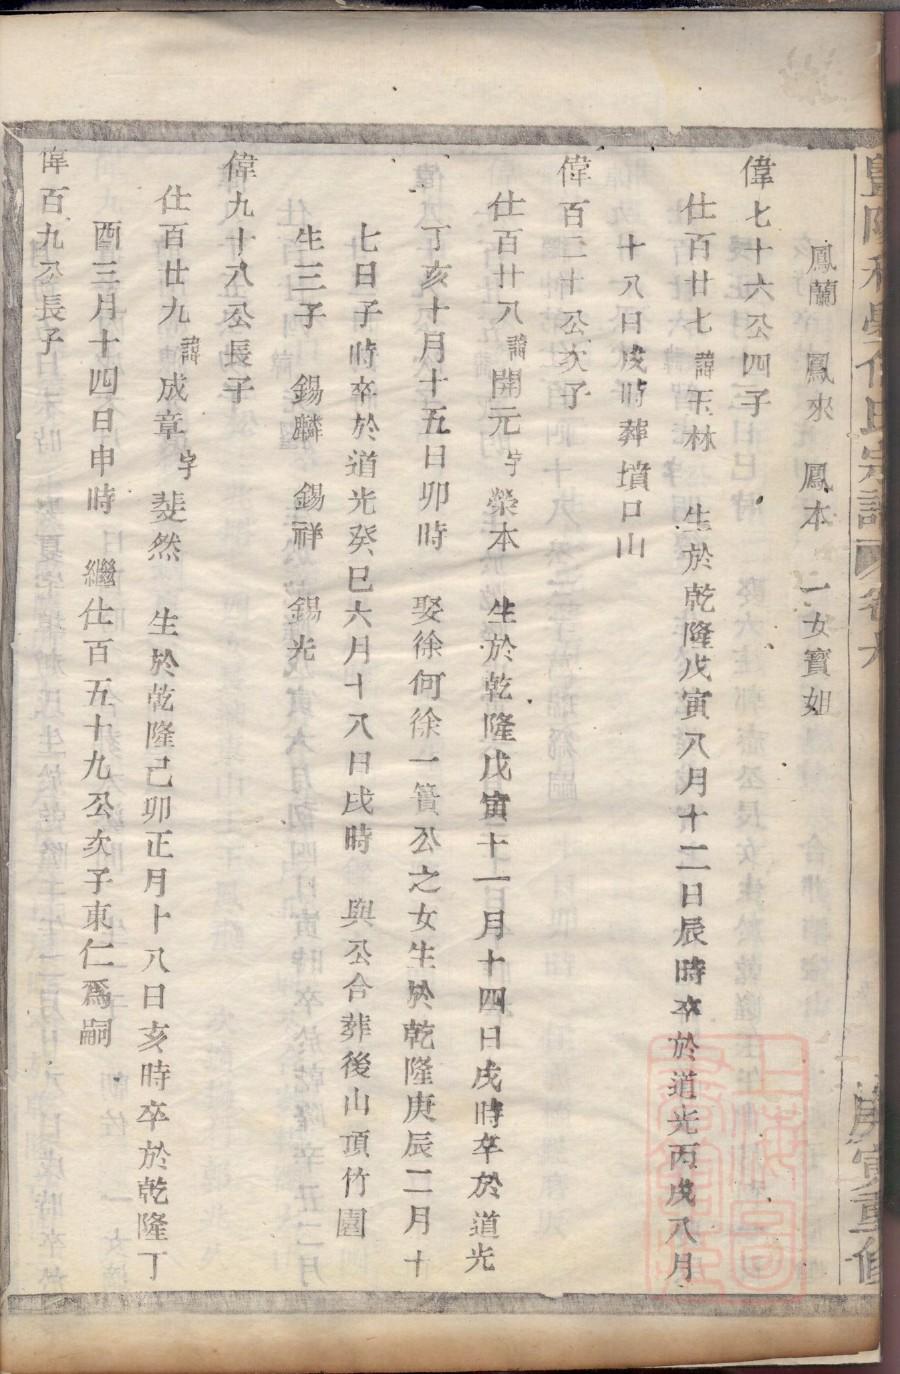 鳳蘭 鳳來 鳳本 一女寳姐
偉七十六公四子
仕百廿七諱玉林 生於乾隆戊寅八月十二日辰時卒於道光丙戌八月
十八日戌時葬墳口山
偉百二十公次子
仕百廿八諱開元字榮本 生於乾隆戊寅十一月十四日戌時卒於道光
丁亥十月十五日卯時 娶徐何徐一簣公之女生於乾隆庚辰二月十
七日子時卒於道光癸巳六月十八日戌時 與公合葬後山頂竹園
生三子 錫麟 錫祥 錫光
偉九十八公長子
仕百廿九諱成章字斐然 生於乾隆己卯正月十八日亥時卒於乾隆丁
酉三月十四日申時 繼仕百五十九公次子東仁爲嗣
偉百九公長子
氏宗譜 卷六 庚寅重修